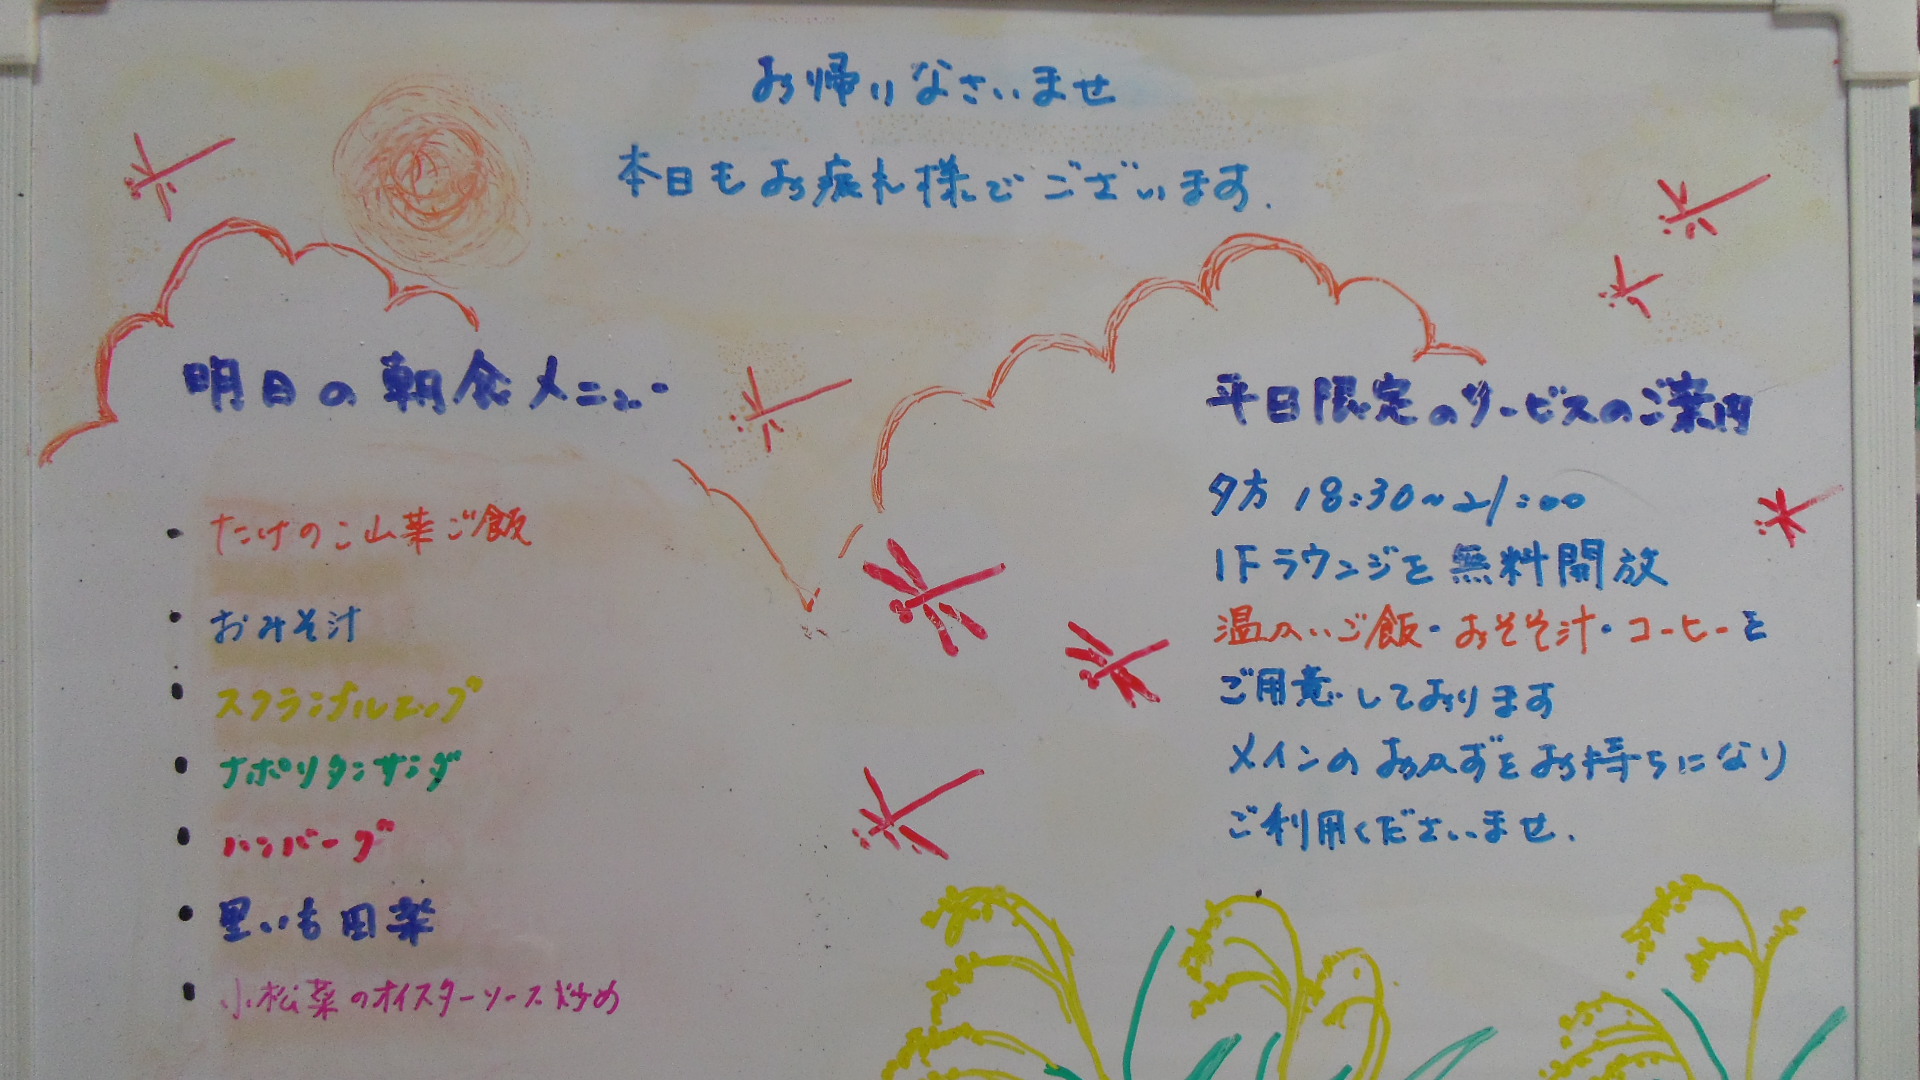 お帰りなさいませ
本日もお疲れ様でございます.
明日の朝食メニュー
・たけのこ山菜ご飯
・おみそ汁
・スクランブルエッグ
・ナポリタンサンダ
・ハンバーグ
・里いも田楽
・小松菜のオイスターソース炒め
平日限定のサービスのご案内
夕方 18:30~21:00
1Fラウンジを無料開放
温かいご飯・おそそ汁・コーヒーを
ご用意しております
メインのおかずをお持ちになり
ご利用くださいませ.